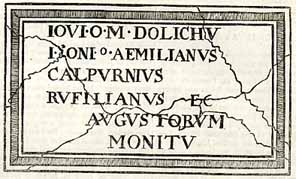 IOVI·O·M·DOLICHV
AEMILIANVS
CALPVRNIVS
RVFILIANVS EC
AVGVSTORVM
MONITV